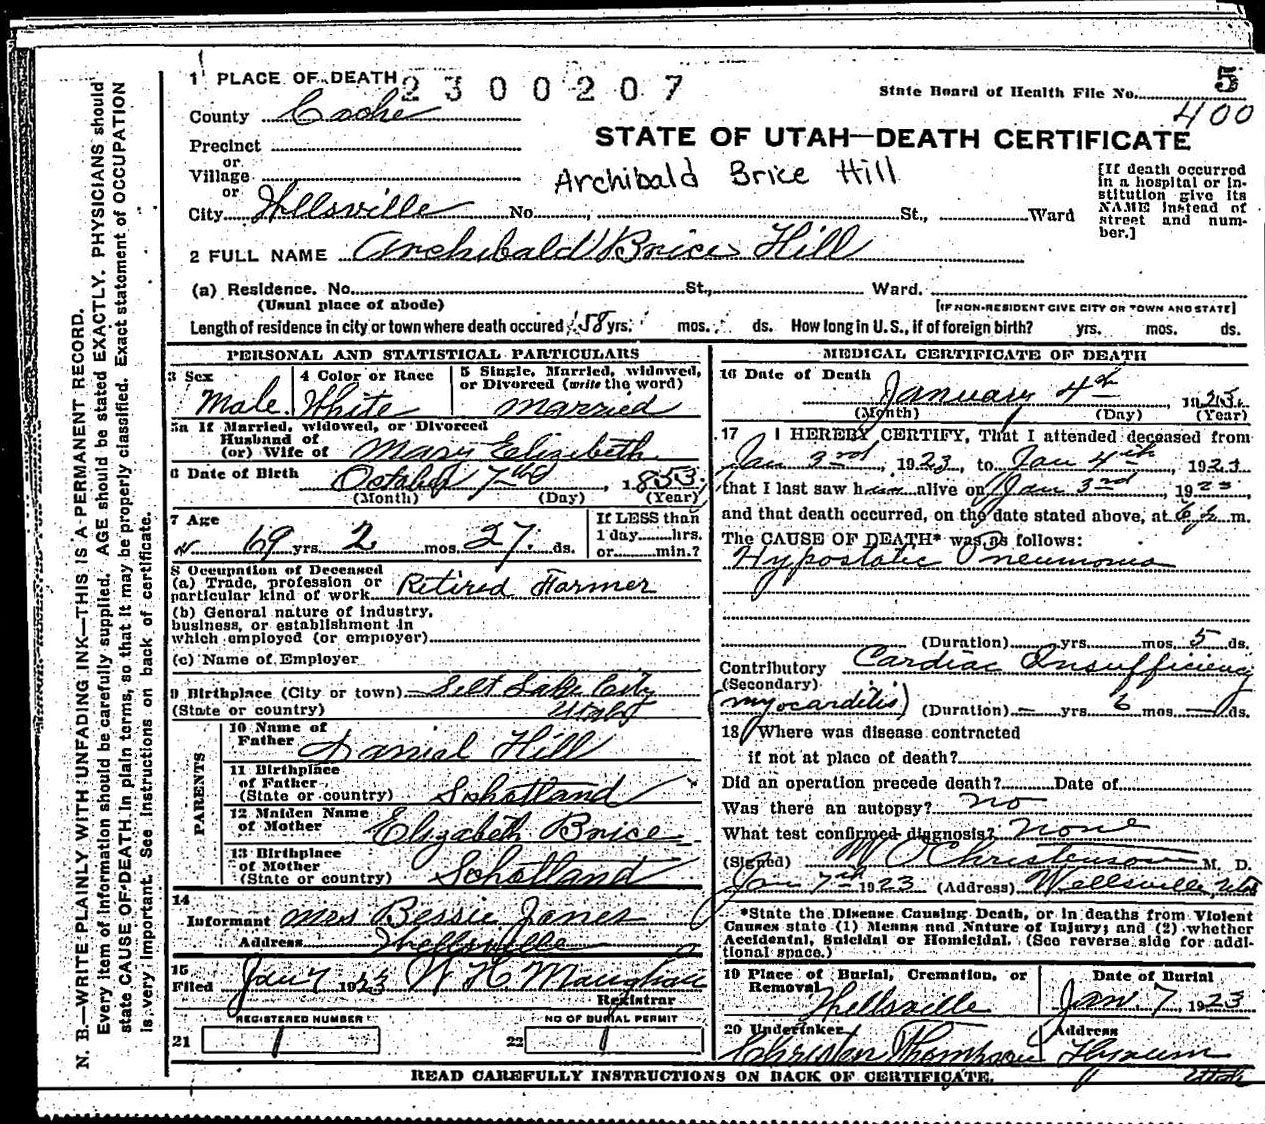 1 PLACE OF DEATH
2300207
State Board of Health File No. 5
400
County Cache
STATE OF UTAH—DEATH CERTIFICATE
Precinct
or
Village
or
Archibald Brice Hill
[If death occurred
in a hospital or in-
stitution give its
NAME instead of
street and num-
ber.]
City Wellsville No. , St., Ward
2 FULL NAME Archibald Brice Hill
(a) Residence. No. St., Ward.
(Usual place of abode)
[IF NON-RESIDENT GIVE CITY OR TOWN AND STATE]
Length of residence in city or town where death occured 58 yrs. mos. ds. How long in U.S., if of foreign birth? yrs. mos. ds.
PERSONAL AND STATISTICAL PARTICULARS
3 Sex
Male
4 Color or Race
White
5 Single, Married, widowed,
or Divorced (write the word)
married
5a If Married, widowed, or Divorced
Husband of
(or) Wife of Mary Elizabeth
6 Date of Birth October 7th, 1853
(Month) (Day) (Year)
7 Age
69 yrs. 2 mos. 27 ds.
If LESS than
1 day hrs.
or min.?
8 Occupation of Deceased
(a) Trade, profession or
particular kind of work Retired Farmer
(b) General nature of industry,
business, or establishment in
which employed (or employer)
(c) Name of Employer
9 Birthplace (City or town) Selt Lake City
(State or country) Utah
PARENTS
10 Name of
Father Danial Hill
11 Birthplace
of Father
(State or country) Schotland
12 Maiden Name
of Mother Elizabeth Brice
13 Birthplace
of Mother
(State or country) Schotland
14
Informant Mrs Bessie Jones
Address Wellsville
15
Filed Jan 7 1923 W H Maughan
Registrar
REGISTERED NUMBER
21 1
NO OF BURIAL PERMIT
22 1
MEDICAL CERTIFICATE OF DEATH
16 Date of Death
January 4th, 1923
(Month) (Day) (Year)
17 I HEREBY CERTIFY, That I attended deceased from
Jan 3rd, 1923, to Jan 4th, 1923
that I last saw him alive on Jan 3rd, 1923,
and that death occurred, on the date stated above, at 6 p m.
The CAUSE OF DEATH* was as follows:
Hypostatic Pneumonia
(Duration) yrs. mos. 5 ds.
Contributory Cardiac Insufficiency
(Secondary)
(myocarditis) (Duration) — yrs. 6 mos. — ds.
18 Where was disease contracted
if not at place of death?
Did an operation precede death? Date of
Was there an autopsy? no
What test confirmed diagnosis? none
(Signed) W O Christenson M. D.
Jan 7th 1923 (Address) Wellsville, Utah
*State the Disease Causing Death, or in deaths from Violent
Causes state (1) Means and Nature of Injury; and (2) whether
Accidental, Suicidal or Homicidal. (See reverse side for addi-
tional space.)
19 Place of Burial, Cremation, or
Removal
Wellsville
Date of Burial
Jan. 7, 1923
20 Undertaker
Address
Hyrum
Utah
READ CAREFULLY INSTRUCTIONS ON BACK OF CERTIFICATE.
N. B.—WRITE PLAINLY WITH UNFADING INK—THIS IS A PERMANENT RECORD.
Every item of information should be carefully supplied. AGE should be stated EXACTLY. PHYSICIANS should
state CAUSE OF DEATH in plain terms, so that it may be properly classified. Exact statement of OCCUPATION
is very important. See instructions on back of certificate.